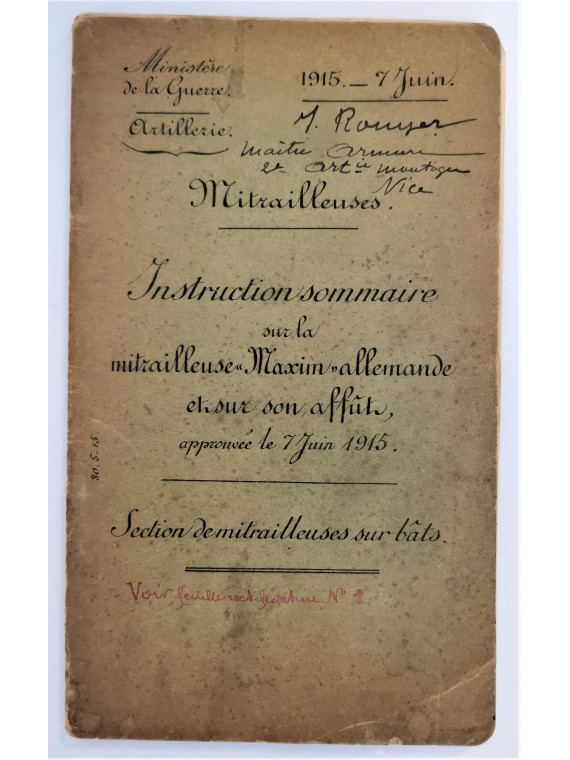 Ministère
de la Guerre.
Artillerie.
1915. — 7 Juin.
Maître Armurier
2e Artie montagne
Nice
Mitrailleuses.
Instruction sommaire
sur la
mitrailleuse « Maxim » allemande
et sur son affût,
approuvée le 7 Juin 1915.
30.5.15.
Section de mitrailleuses sur bâts.
Voir feuille rectificative N° 1